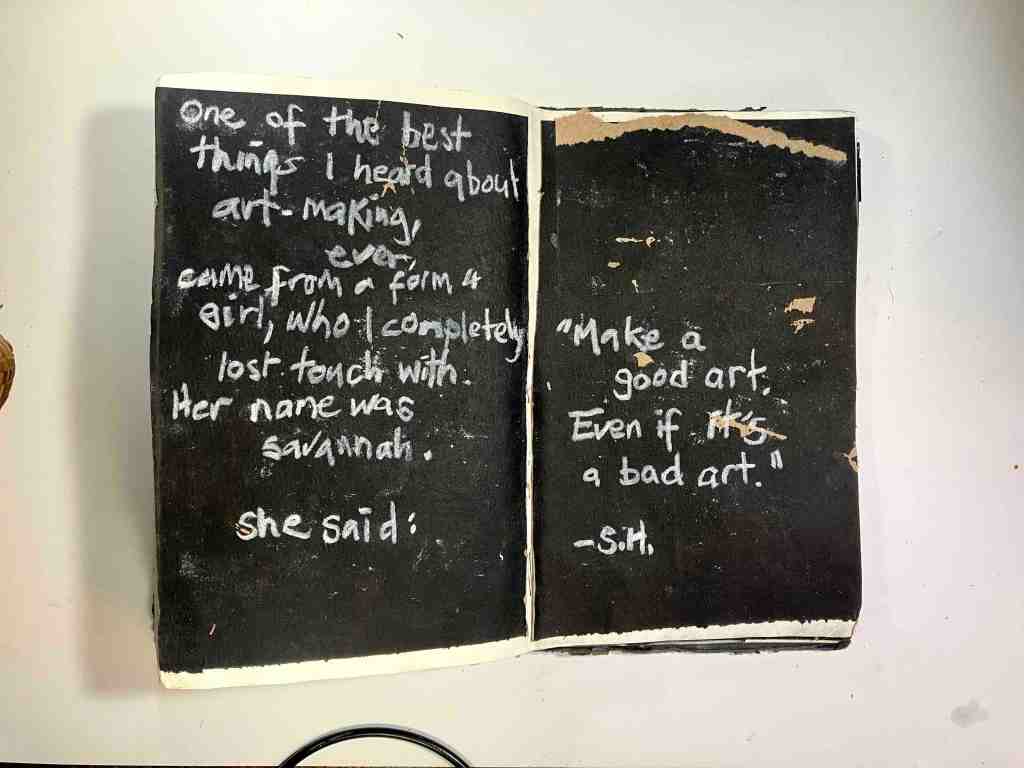 One of the best
things I heard about
art-making,
ever,
came from a form 4
girl, who I completely
lost touch with.
Her name was
savannah.
she said:
"Make a
good art.
Even if it's
a bad art."
-S.H.